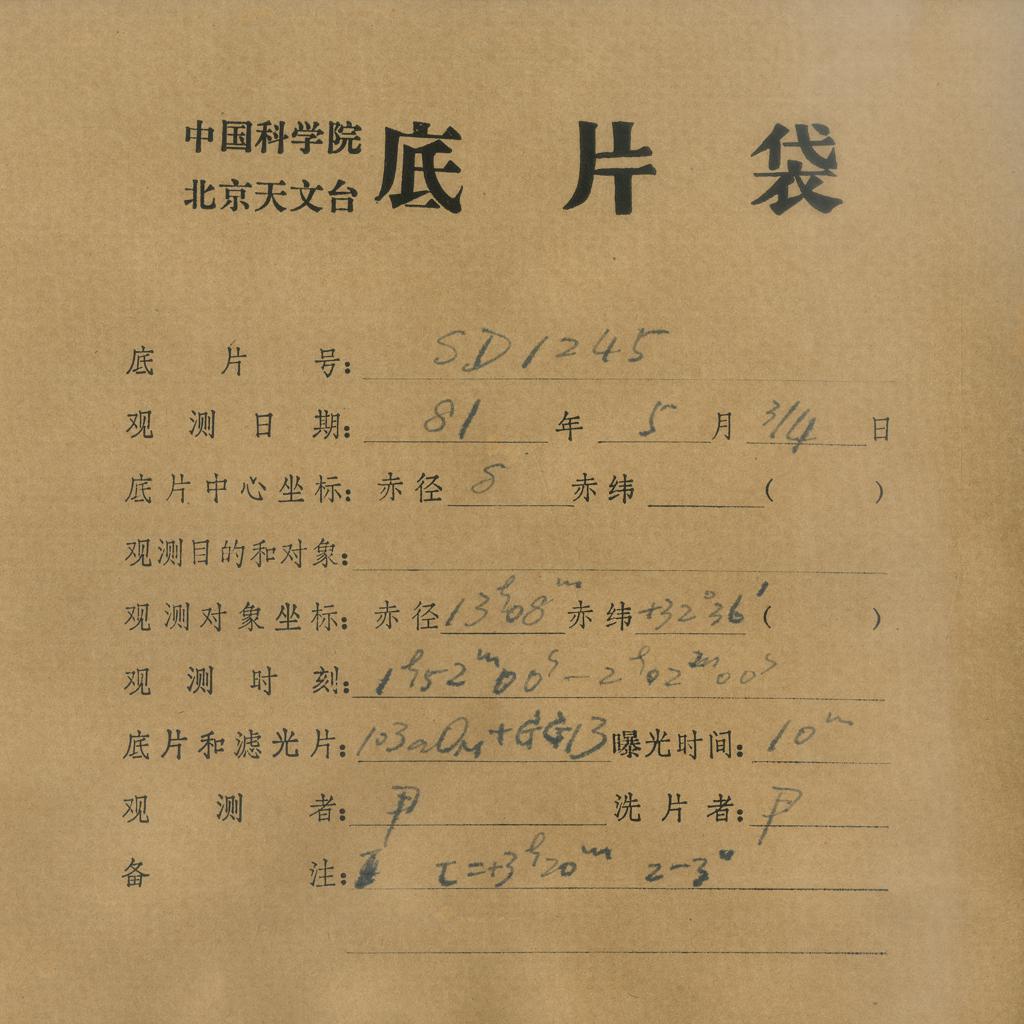 中国科学院
北京天文台
底片袋
底片号: SD1245
观测日期: 81 年 5 月 3/4 日
底片中心坐标: 赤径 S 赤纬 ( )
观测目的和对象:
观测对象坐标: 赤径 13h08m 赤纬 +32°36′ ( )
观测时刻: 1h52m00s-2h02m00s
底片和滤光片: 103aO+GG13 曝光时间: 10m
观测者: 洗片者:
备注: t=+3h20m 2-3"